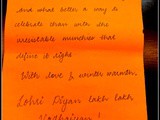 And what better a way to
celebrate than with the
irresistable munchies that
define it right
With love & winter warmth,
Lohri Diyan lakh lakh
Vadhaiyan!